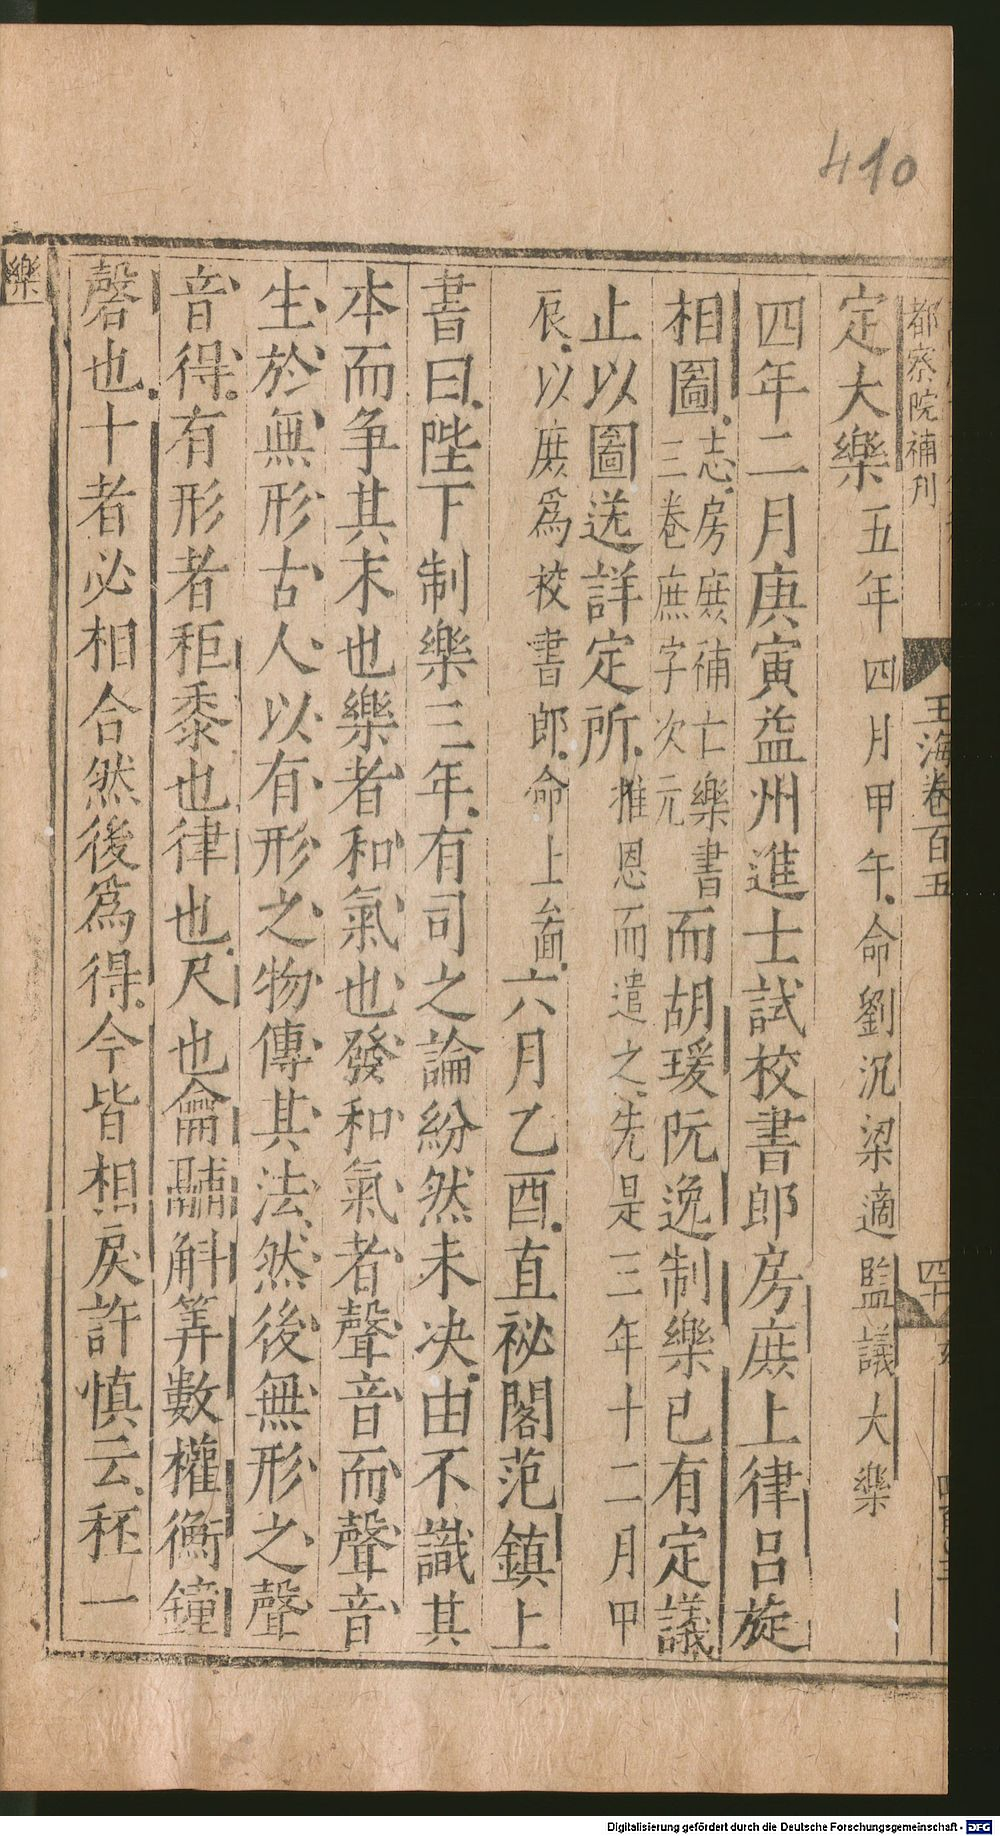 410
都察院補刊
玉海卷百五
定大樂五年四月甲午命劉沆梁適監議大樂
四年二月庚寅益州進士試校書郎房庶上律呂旋
相圖志房庶補亡樂書三卷庶字次元而胡瑗阮逸制樂已有定議
止以圖送詳定所推恩而遣之先是三年十二月甲
辰以庶爲校書郎命上其圖六月乙酉直祕閣范鎮上
書曰陛下制樂三年有司之論紛然未决由不識其
本而争其末也樂者和氣也發和氣者聲音而聲音
生於無形古人以有形之物傳其法然後無形之聲
音得有形者秬黍也律也尺也龠鬴斛筭數權衡鐘
磬也十者必相合然後爲得今皆相戾許慎云秠一
樂
Digitalisierung gefördert durch die Deutsche Forschungsgemeinschaft - DFG